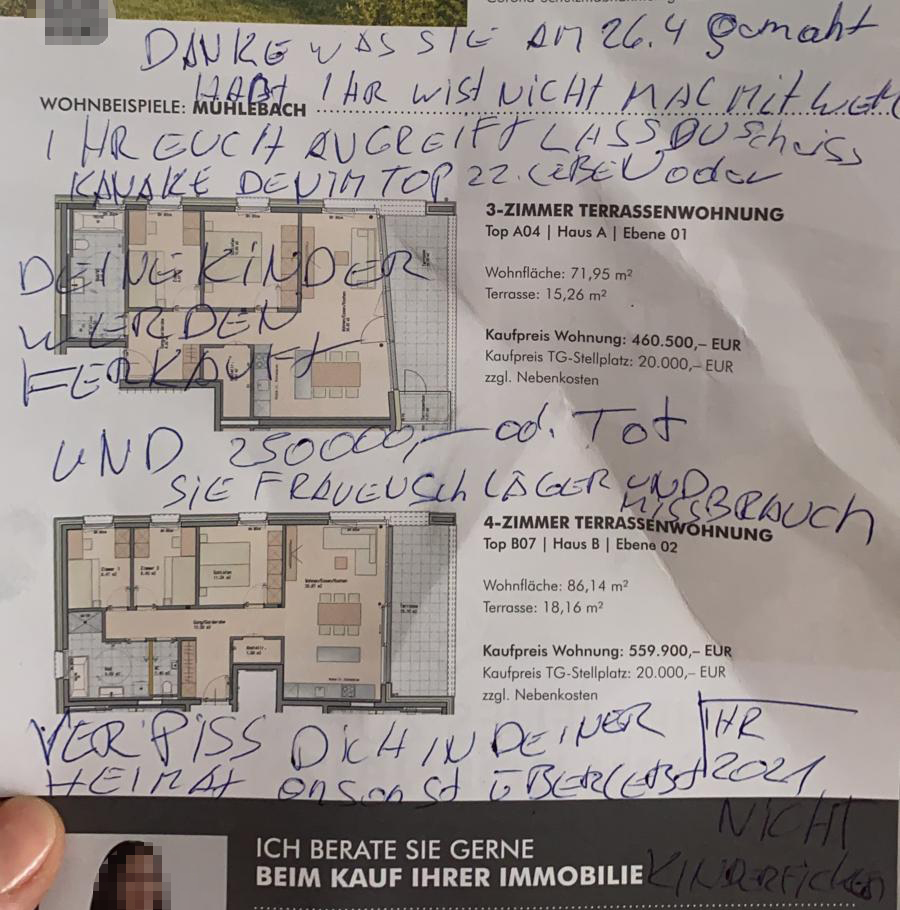 DANKE WAS SIE AM 26.4 gemaht
HABT IHR WIST NICHT MAL MIT WEM
WOHNBEISPIELE: MÜHLEBACH
IHR EUCH ANGREIFT LASS DU Scheiss
KANAKE DEN IM TOP 22. LEBEN oder
3-ZIMMER TERRASSENWOHNUNG
Top A04 | Haus A | Ebene 01
Wohnfläche: 71,95 m²
Terrasse: 15,26 m²
Kaufpreis Wohnung: 460.500,– EUR
Kaufpreis TG-Stellplatz: 20.000,– EUR
zzgl. Nebenkosten
DEINE KINDER
WERDEN
FERKAUFT
UND 250000,— od. Tot
SIE FRAUENSCHLÄGER UND
MISSBRAUCH
4-ZIMMER TERRASSENWOHNUNG
Top B07 | Haus B | Ebene 02
Wohnfläche: 86,14 m²
Terrasse: 18,16 m²
Kaufpreis Wohnung: 559.900,– EUR
Kaufpreis TG-Stellplatz: 20.000,– EUR
zzgl. Nebenkosten
VERPISS DICH IN DEINER
HEIMAT onsonst ÜBERLEBST
IHR
2021
NICHT
KINDERFICKER
ICH BERATE SIE GERNE
BEIM KAUF IHRER IMMOBILIE